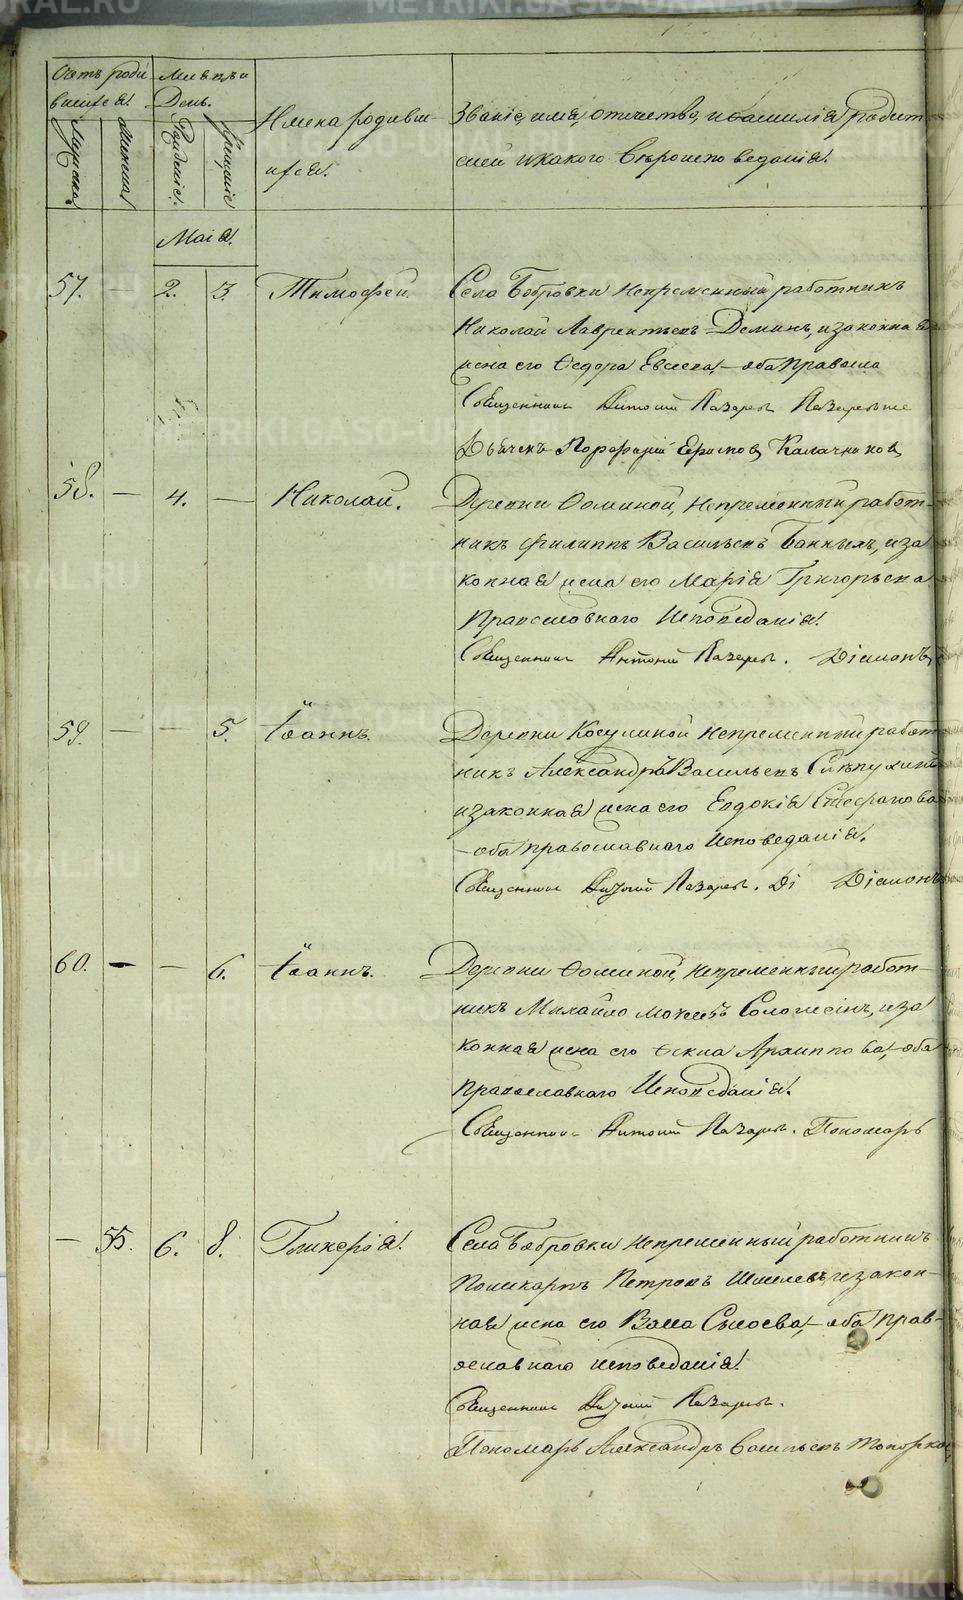 Счетъ роди-
вшихся.
Мѣсяцъ и
День.
Имена родивши-
ихся.
Званіе, имя, отчество, и фамилія родит-
елей и какого вѣроисповеданія.
Мужеска
Женска
Рожденіе.
Крещеніе
Маія.
57. — 2. 3. Тимофей. Села Бобровки Непременный работникъ
Николай Лаврентьевъ Деминъ, и законная
жена его Федора Евсеева, — оба Правосла
Священникъ Антоній Лазаревъ
Дьячекъ Порфирій Калачниковъ
58. — 4. — Николай. Деревни Фоминой, Непременный работ-
никъ Филиппъ Васильевъ Банныхъ, и за
конная жена его Марія Григорьева
Православнаго Исповеданія.
Священникъ Антоній Лазаревъ. Діаконъ
59. — — 5. Іоаннъ. Деревни Косулиной Непременный работ
никъ Александръ Васильевъ
и законная жена его Евдокія Стефанова
— оба православнаго Исповеданія.
Священникъ Антоній Лазаревъ. Ді Діаконъ
60. — — 6. Іоаннъ. Деревни Фоминой, Непременный работ-
никъ Михайло Мокеевъ и за
конная жена его Фекла Архиппова, — оба
Православнаго Исповеданія.
Священникъ Антоній Лазаревъ. Пономарь
— 55. 6. 8. Гликерія. Села Бобровки Непременный работникъ
Поликарпъ Петровъ Шмелевъ, и закон-
ная жена его Васса Сысоева, — оба прав-
ославнаго исповеданія.
Священникъ Антоній Лазаревъ.
Пономарь Александръ Васильевъ Топорков